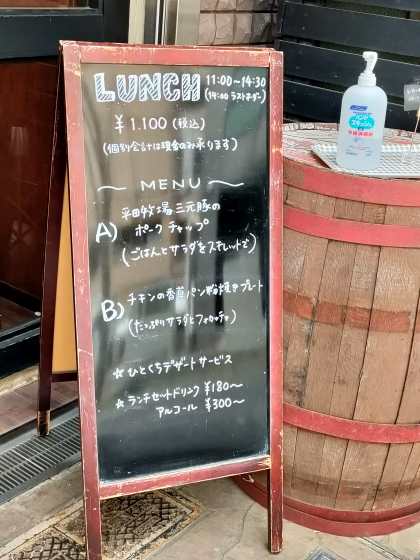 LUNCH 11:00~14:30
(14:00 ラストオーダー)
¥1.100(税込)
(個別会計は現金のみ承ります)
~ MENU ~
A) 平田牧場三元豚の
ポークチャップ
(ごはんとサラダをスキレットで)
B) チキンの香草パン粉焼きプレート
(たっぷりサラダとフォカッチャ)
☆ひとくちデザートサービス
☆ランチセットドリンク ¥180~
アルコール ¥300~